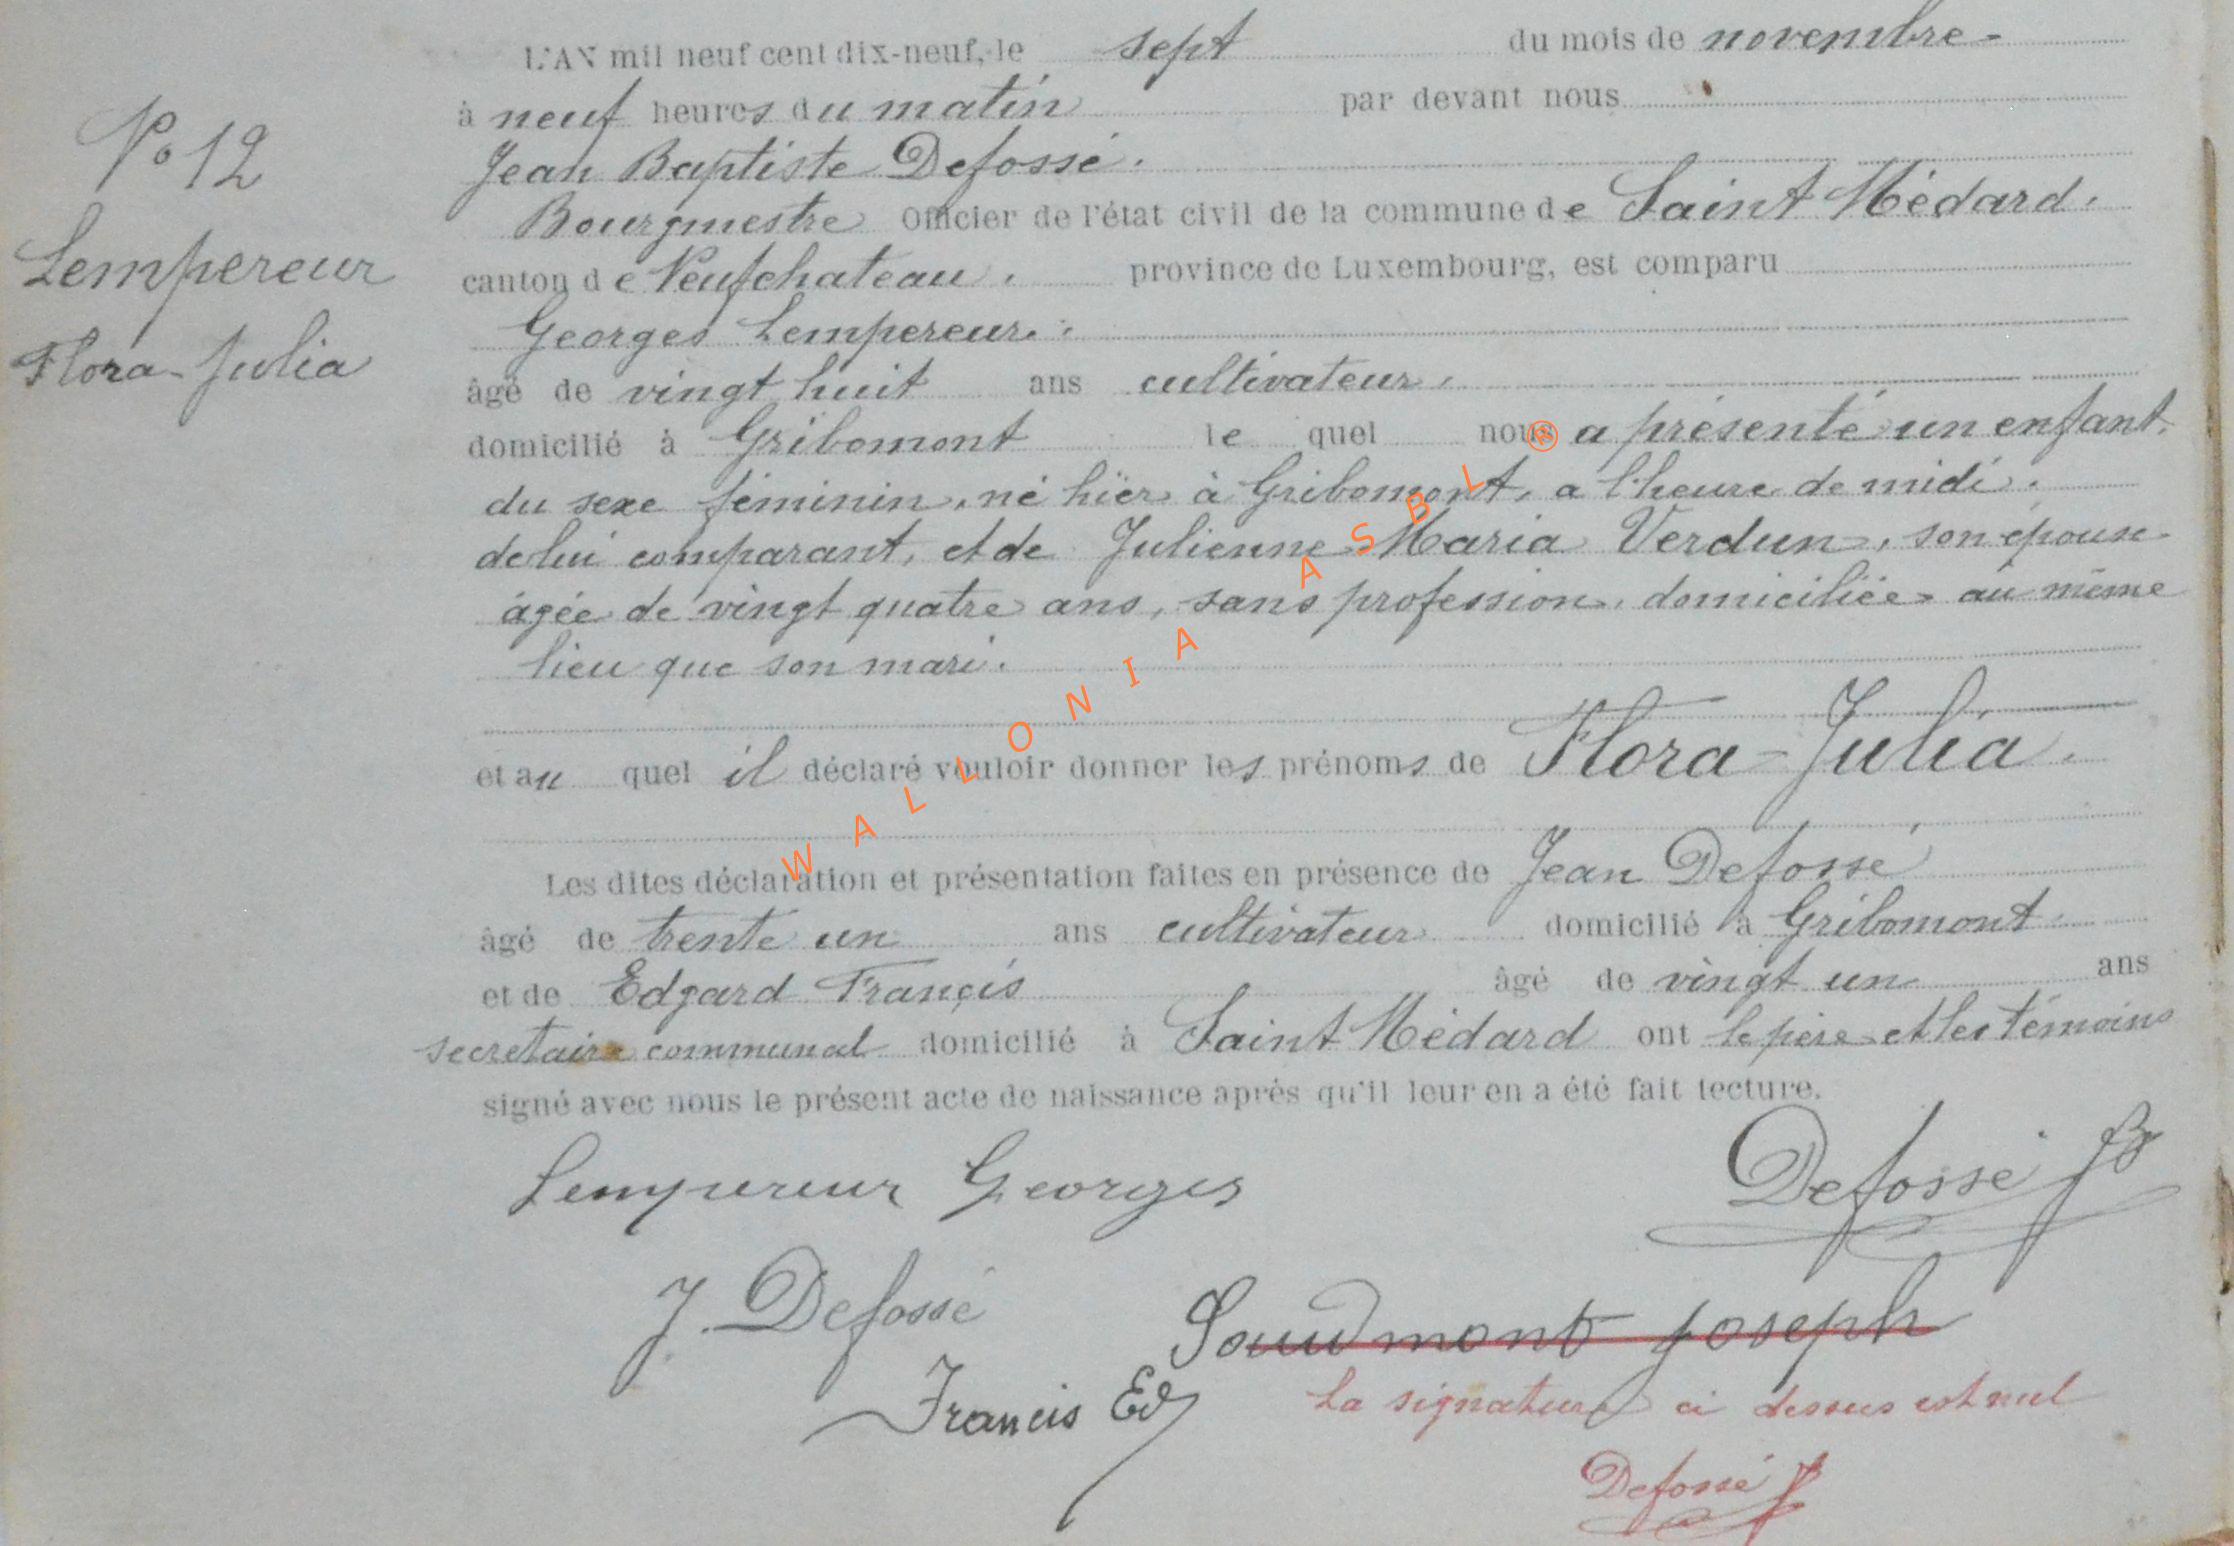 L'AN mil neuf cent dix-neuf, le sept du mois de novembre -
à neuf heures du matin par devant nous
Jean Baptiste Defossé.
Bourgmestre Officier de l'état civil de la commune de Saint Médard.
canton de Neufchateau. province de Luxembourg, est comparu
Georges Lempereur.
âgé de vingt huit ans cultivateur.
domicilié à Gribomont le quel nous a présenté un enfant.
du sexe féminin, né hier à Gribomont, a l'heure de midi.
de lui comparant, et de Julienne Maria Verdun, son épouse
âgée de vingt quatre ans, sans profession, domiciliée au même
lieu que son mari.
et au quel il déclaré vouloir donner les prénoms de Flora-Julia.
Les dites déclaration et présentation faites en présence de Jean Defossé
âgé de trente un ans cultivateur domicilié à Gribomont.
et de Edgard Françis âgé de vingt un ans
secretaire communal domicilié à Saint Médard ont le père et les témoins
signé avec nous le présent acte de naissance après qu'il leur en a été fait lecture.
No 12
Lempereur
Flora-Julia
Lempereur Georges
Defossé JB
J. Defossé
Joseph
Francis Ed
La signature ci dessus est nul
Defossé
WALLONIA ASBL ®